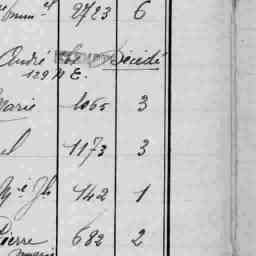 2723 6
André Décédé
129 N. E.
Marie 1065 3
el 1173 3
142 1
Pierre 682 2